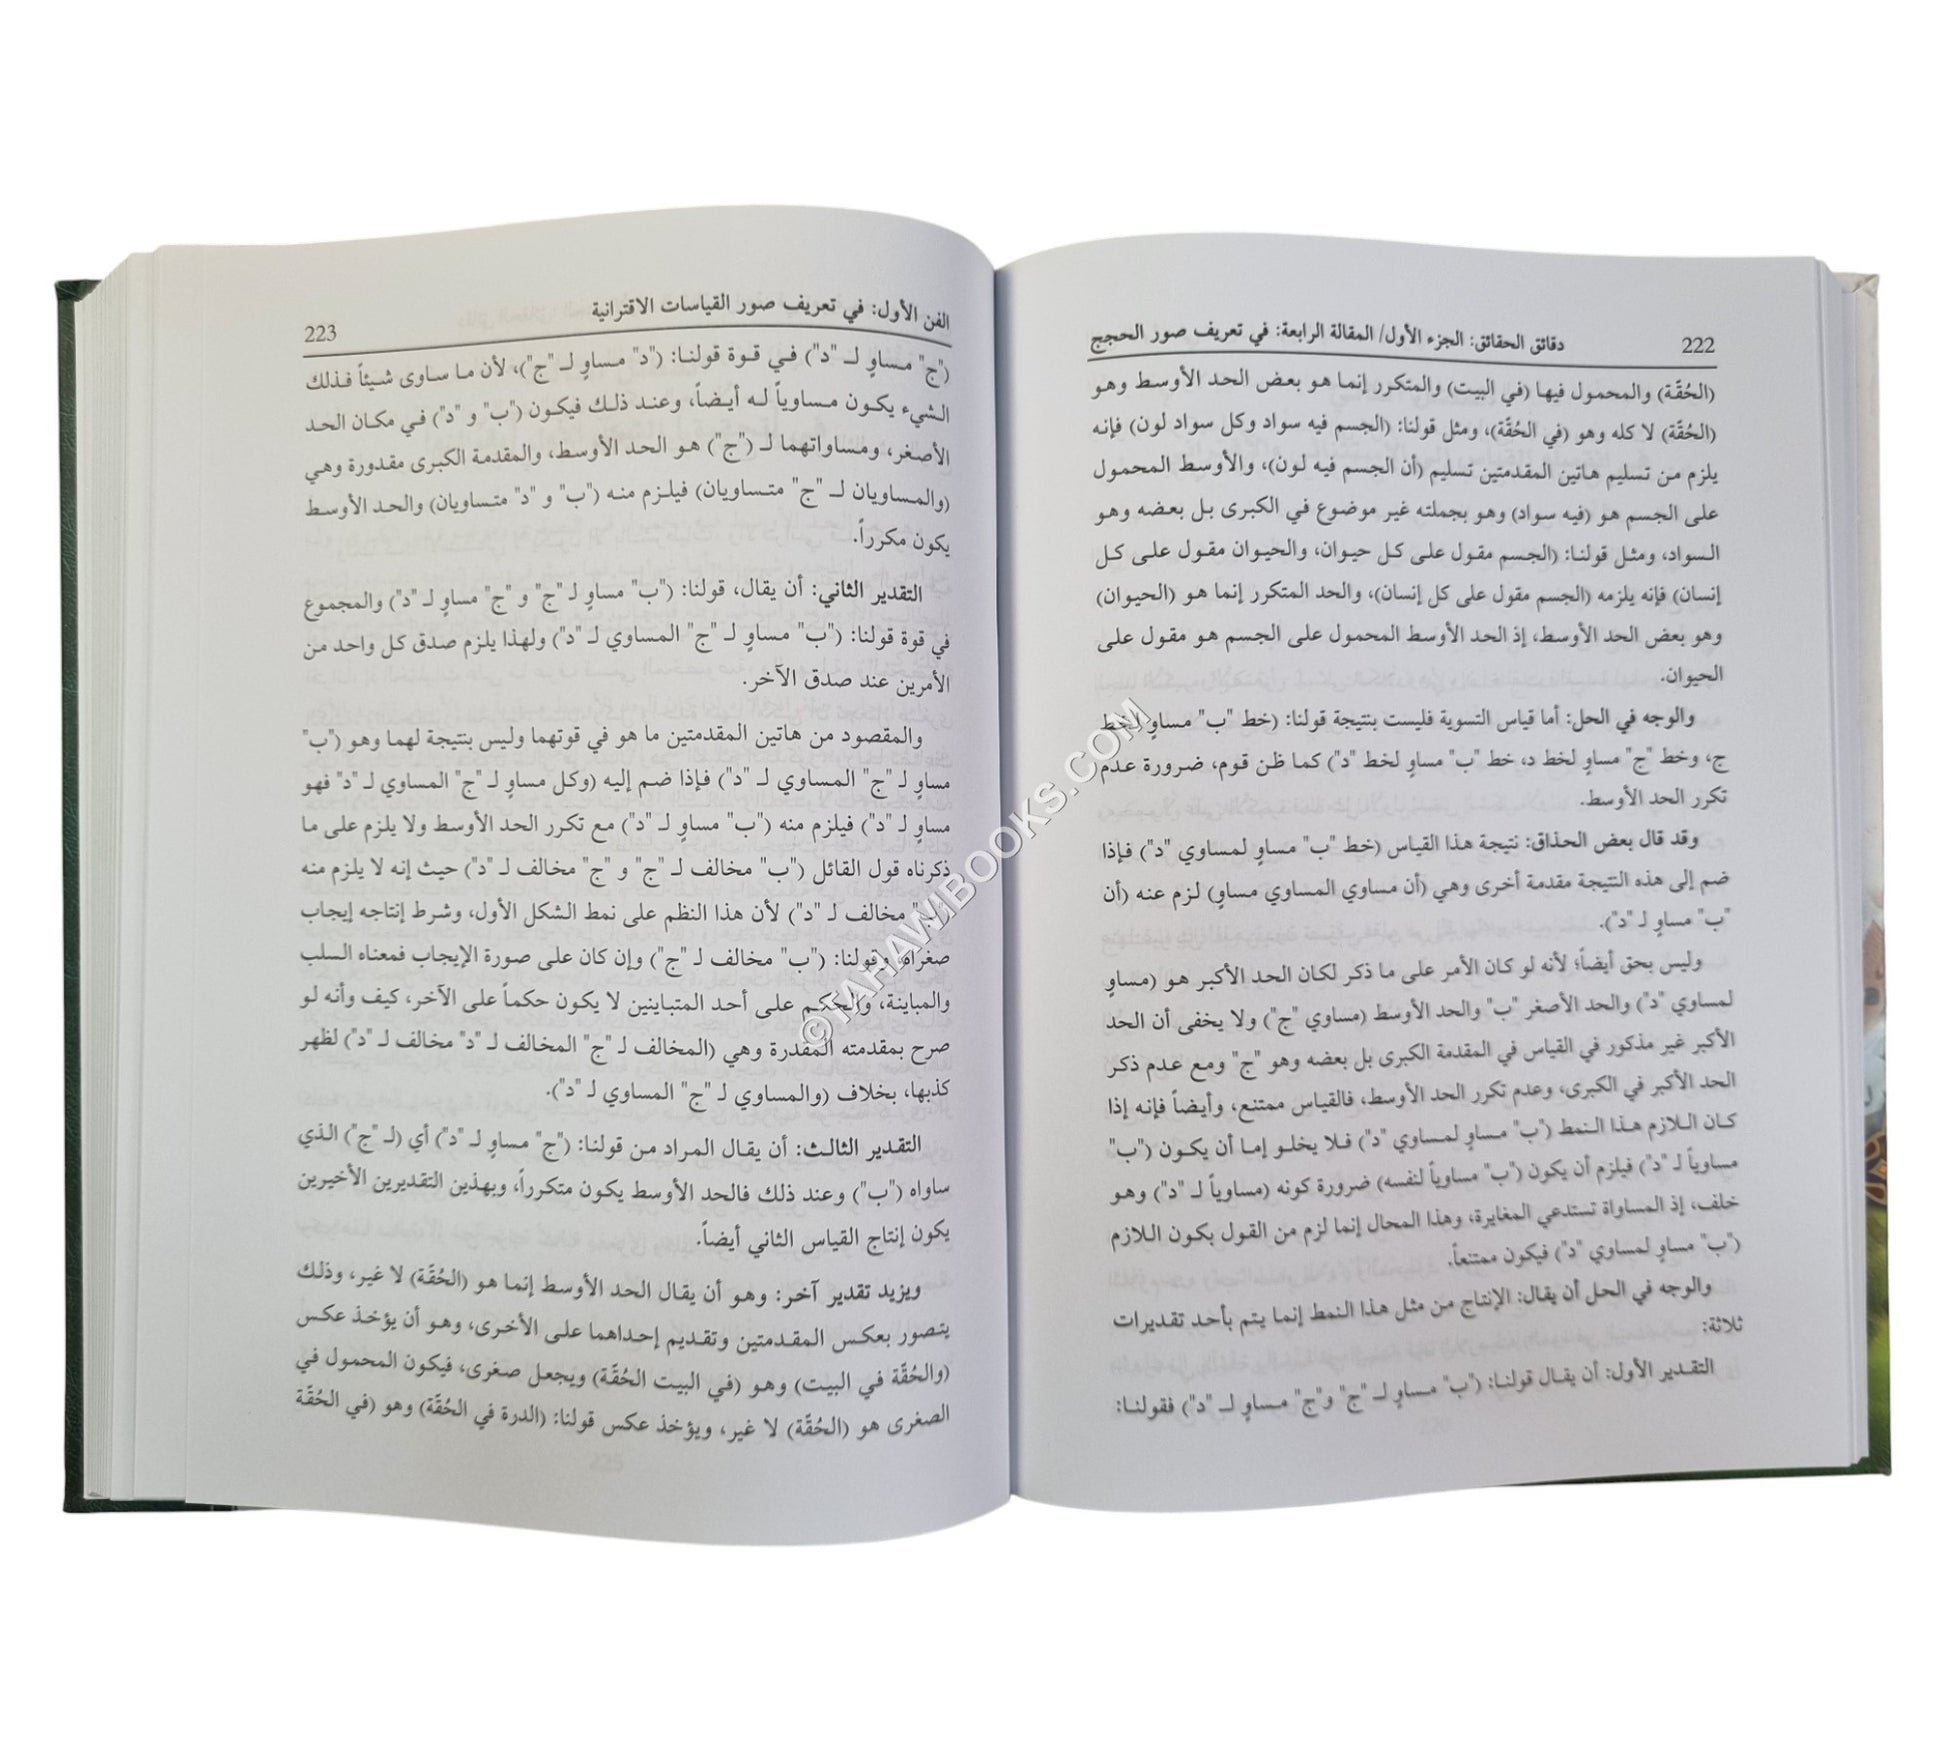 222 دقائق الحقائق: الجزء الأول/ المقالة الرابعة: في تعريف صور الحجج
(الحُقّة) والمحمول فيها (في البيت) والمتكرر إنما هو بعض الحد الأوسط وهو
(الحُقّة) لا كله وهو (في الحُقّة)، ومثل قولنا: (الجسم فيه سواد وكل سواد لون) فإنه
يلزم من تسليم هاتين المقدمتين تسليم (أن الجسم فيه لون)، والأوسط المحمول
على الجسم هو (فيه سواد) وهو بجملته غير موضوع في الكبرى بل بعضه وهو
السواد، ومثل قولنا: (الجسم مقول على كل حيوان، والحيوان مقول على كل
إنسان) فإنه يلزمه (الجسم مقول على كل إنسان)، والحد المتكرر إنما هو (الحيوان)
وهو بعض الحد الأوسط، إذ الحد الأوسط المحمول على الجسم هو مقول على
الحيوان.
والوجه في الحل: أما قياس التسوية فليست بنتيجة قولنا: (خط "ب" مساوٍ لخط
ج، وخط "ج" مساوٍ لخط د، خط "ب" مساوٍ لخط "د") كما ظن قوم، ضرورة عدم
تكرر الحد الأوسط.
وقد قال بعض الحذاق: نتيجة هذا القياس (خط "ب" مساوٍ لمساوي "د") فإذا
ضم إلى هذه النتيجة مقدمة أخرى وهي (أن مساوي المساوي مساوٍ) لزم عنه (أن
"ب" مساوٍ لـ "د").
وليس بحق أيضاً؛ لأنه لو كان الأمر على ما ذكر لكان الحد الأكبر هو (مساوٍ
لمساوي "د") والحد الأصغر "ب" والحد الأوسط (مساوي "ج") ولا يخفى أن الحد
الأكبر غير مذكور في القياس في المقدمة الكبرى بل بعضه وهو "ج" ومع عدم ذكر
الحد الأكبر في الكبرى، وعدم تكرر الحد الأوسط، فالقياس ممتنع، وأيضاً فإنه إذا
كان اللازم هذا النمط ("ب" مساوٍ لمساوي "د") فلا يخلو إما أن يكون ("ب"
مساوياً لـ "د") فيلزم أن يكون ("ب" مساوياً لنفسه) ضرورة كونه (مساوياً لـ "د") وهو
خلف، إذ المساواة تستدعي المغايرة، وهذا المحال إنما لزم من القول بكون اللازم
("ب" مساوٍ لمساوي "د") فيكون ممتنعاً.
والوجه في الحل أن يقال: الإنتاج من مثل هذا النمط إنما يتم بأحد تقديرات
ثلاثة:
التقدير الأول: أن يقال قولنا: ("ب" مساوٍ لـ "ج" و"ج" مساوٍ لـ "د") فقولنا:
الفن الأول: في تعريف صور القياسات الاقترانية 223
("ج" مساوٍ لـ "د") في قوة قولنا: ("د" مساوٍ لـ "ج")، لأن ما ساوى شيئاً فذلك
الشيء يكون مساوياً له أيضاً، وعند ذلك فيكون ("ب" و "د") في مكان الحد
الأصغر، ومساواتهما لـ ("ج") هو الحد الأوسط، والمقدمة الكبرى مقدورة وهي
(والمساويان لـ "ج" متساويان) فيلزم منه ("ب" و "د" متساويان) والحد الأوسط
يكون مكرراً.
التقدير الثاني: أن يقال، قولنا: ("ب" مساوٍ لـ "ج" و "ج" مساوٍ لـ "د") والمجموع
في قوة قولنا: ("ب" مساوٍ لـ "ج" المساوي لـ "د") ولهذا يلزم صدق كل واحد من
الأمرين عند صدق الآخر.
والمقصود من هاتين المقدمتين ما هو في قوتهما وليس بنتيجة لهما وهو ("ب"
مساوٍ لـ "ج" المساوي لـ "د") فإذا ضم إليه (وكل مساوٍ لـ "ج" المساوي لـ "د" فهو
مساوٍ لـ "د") فيلزم منه ("ب" مساوٍ لـ "د") مع تكرر الحد الأوسط ولا يلزم على ما
ذكرناه قول القائل ("ب" مخالف لـ "ج" و "ج" مخالف لـ "د") حيث إنه لا يلزم منه
("ب" مخالف لـ "د") لأن هذا النظم على نمط الشكل الأول، وشرط إنتاجه إيجاب
صغراه، وقولنا: ("ب" مخالف لـ "ج") وإن كان على صورة الإيجاب فمعناه السلب
والمباينة، والحكم على أحد المتباينين لا يكون حكماً على الآخر، كيف وأنه لو
صرح بمقدمته المقدرة وهي (المخالف لـ "ج" المخالف لـ "د" مخالف لـ "د") لظهر
كذبها، بخلاف (والمساوي لـ "ج" المساوي لـ "د").
التقدير الثالث: أن يقال المراد من قولنا: ("ج" مساوٍ لـ "د") أي (لـ "ج") الذي
ساواه ("ب") وعند ذلك فالحد الأوسط يكون متكرراً، وبهذين التقديرين الأخيرين
يكون إنتاج القياس الثاني أيضاً.
ويزيد تقدير آخر: وهو أن يقال الحد الأوسط إنما هو (الحُقّة) لا غير، وذلك
يتصور بعكس المقدمتين وتقديم إحداهما على الأخرى، وهو أن يؤخذ عكس
(والحُقّة في البيت) وهو (في البيت الحُقّة) ويجعل صغرى، فيكون المحمول في
الصغرى هو (الحُقّة) لا غير، ويؤخذ عكس قولنا: (الدرة في الحُقّة) وهو (في الحُقّة
©TAHAWIBOOKS.COM